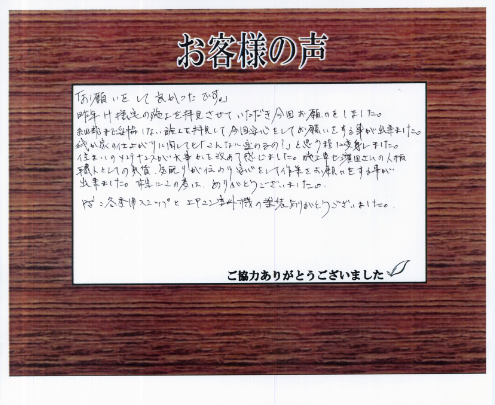 お客様の声
「お願いをして良かったです。」
昨年H様宅の施工を拝見させていただき今回お願いをしました。
細部まで妥協しない施工を拝見して今回安心をしてお願いをする事が出来ました。
我が家の仕上がりに関しても「こんなに変わるの!」と思う程に
住まいのメンテナンスが大事かを改めて感じました。施工車と澤田さんの人柄
職人としての気質、気配りが伝わり安心をして作業をお願いをする事が
出来ました。本当にこの度は、ありがとうございました。
PS:冬季用スロップとエアコン室外機の塗装ありがとうございました。
ご協力ありがとうございました